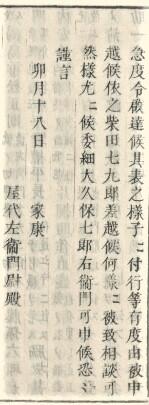 急度令啟達候其表之樣子ニ付行等有度由被申
越候依之柴田七九郎差越候何篇ニ被致相談可
然樣尤ニ候委細大久保七郎右衞門可申候恐〻
謹言
卯月十八日　家康
屋代左衞門尉殿